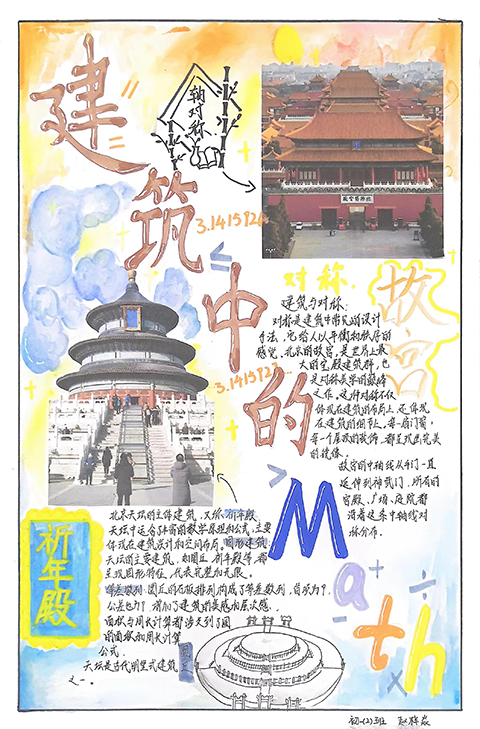 建筑中的
Math
轴对称
3.1415926
3.1415926...
故宫博物院
对称.
故宫
建筑与对称:
对称是建筑中常见的设计
手法,它给人以平衡和秩序的
感觉,北京的故宫,是世界上最
大的宫殿建筑群,也
是对称美学的巅峰
之作,这种对称不仅
体现在建筑的布局上,还体现
在建筑的细节上,每一扇门窗,
每一个屋顶的装饰,都呈现出完美
的镜像。
故宫的中轴线从午门一直
延伸到神武门,所有的
宫殿、广场、庭院都
沿着这条中轴线对
称分布.
祈年殿
北京天坛的主体建筑,又称:祈年殿
天坛中运含了丰富的数学原理和公式,主要
体现在建筑设计和空间布局。圆形建筑:
天坛的主要建筑,如圜丘,祈年殿等,都
呈现圆形特征,代表完整和无限。
等差数列:圜丘的石板排列构成了等差数列,首项为9,
公差也为9,增加了建筑的美感和层次感.
面积与周长计算都涉及到了圆
的面积和周长计算
公式.
天坛是古代明堂式建筑
之一。
圜丘
初一(2)班